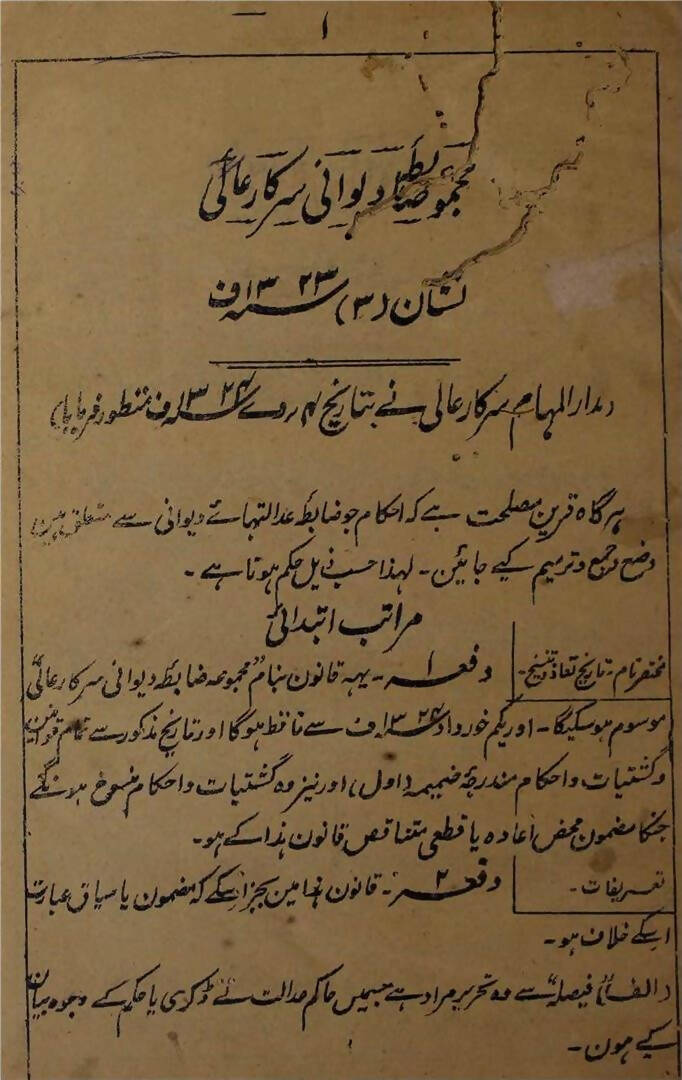 ۱
مجموعہ ضابطۂ دیوانی سرکار عالی
نشان (۳) ۱۳۲۳ سنہ ف
(مدار المہام سرکار عالی نے بتاریخ ۴ ر دے ۱۳۲۴ سنہ ف منظور فرمایا)
ہر گاہ قرین مصلحت ہے کہ احکام جو ضابطۂ عدالتہائے دیوانی سے متعلق ہین
وضع و جمع و ترمیم کیے جائین ۔ لہذا حسب ذیل حکم ہوتا ہے ۔
مراتب ابتدائی
مختصر نام ۔ تاریخ نفاذ و تنسیخ ۔
دفعہ ۱ ۔ یہہ قانون بنام "مجموعہ ضابطۂ دیوانی سرکار عالی"
موسوم ہو سکیگا ۔ اور یکم خورداد ۱۳۲۴ سنہ ف سے نافذ ہوگا اور تاریخ مذکور سے تمام قوانین
و گشتیات و احکام مندرجۂ ضمیمہ (اول) اور نیز وہ گشتیات و احکام منسوخ ہونگے
جنکا مضمون محض اعادہ یا قطعی متناقص قانون ہذا کے ہو ۔
تعریفات ۔
دفعہ ۲ ۔ قانون ہذا مین بجز اسکے کہ مضمون یا سیاق عبارت
اسکے خلاف ہو ۔
(الف) "فیصلہ" سے وہ تحریر مراد ہے جسمیں حاکم عدالت نے ڈکری یا حکم کے وجوہ بیان
کیے ہون ۔